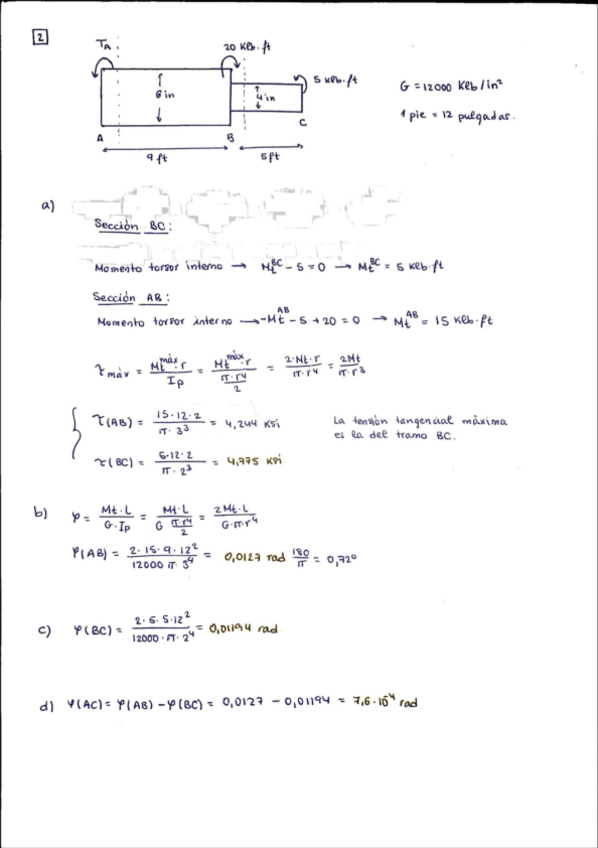 2
T_A
20 Klb.ft
5 Klb.ft
6 in
4 in
A
B
C
9 ft
5 ft
G = 12000 Klb/in²
1 pie = 12 pulgadas.
a)
Sección BC:
Momento torsor interno → M_t^BC - 5 = 0 → M_t^BC = 5 Klb.ft
Sección AB:
Momento torsor interno → -M_t^AB - 5 + 20 = 0 → M_t^AB = 15 Klb.ft
τ_máx = M_t^máx · r / I_p = M_t^máx · r / (π·r⁴/2) = 2·Mt·r / π·r⁴ = 2Mt / π·r³
τ(AB) = 15·12·2 / π·3³ = 4,244 KSi
τ(BC) = 5·12·2 / π·2³ = 4,775 KPi
La tensión tangencial máxima
es la del tramo BC.
b) φ = Mt·L / G·Ip = Mt·L / G π·r⁴/2 = 2Mt·L / G·π·r⁴
φ(AB) = 2·15·9·12² / 12000 π·3⁴ = 0,0127 rad 180/π = 0,72º
c) φ(BC) = 2·5·5·12² / 12000·π·2⁴ = 0,01194 rad
d) φ(AC) = φ(AB) - φ(BC) = 0,0127 - 0,01194 = 7,6·10⁻⁴ rad